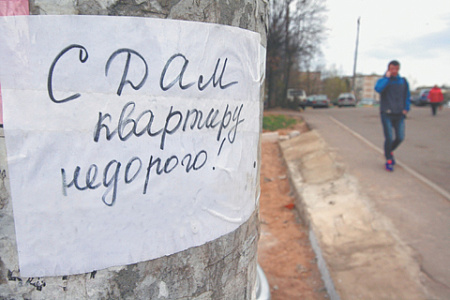 СДАМ
квартиру
недорого!